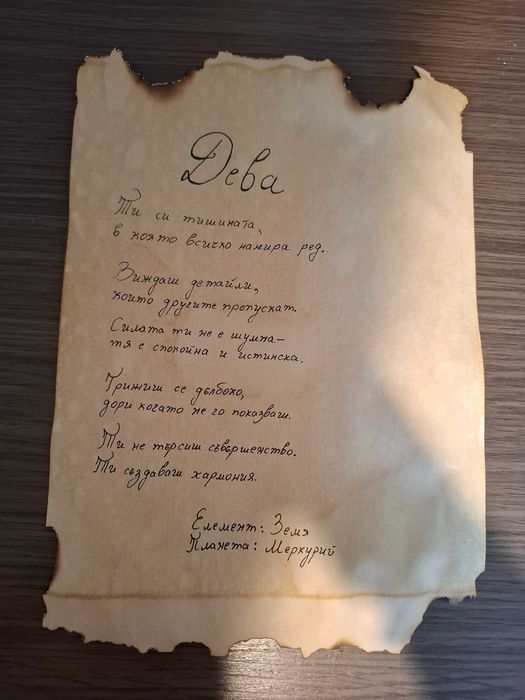 Дева
Ти си тишината,
в която всичко намира ред.
Виждаш детайли,
които другите пропускат.
Силата ти не е шумна-
тя е спокойна и истинска.
Грижиш се дълбоко,
дори когато не го показваш.
Ти не търсиш съвършенство.
Ти създаваш хармония.
Елемент: Земя
Планета: Меркурий